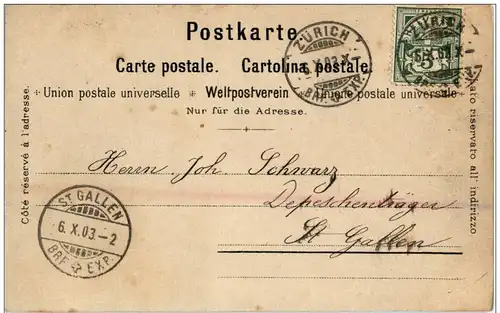 Postkarte
Carte postale. Cartolina postale.
Union postale universelle * Weltpostverein * Unione postale universale
Nur für die Adresse.
Côté réservé à l'adresse.
Lato riservato all' indirizzo
ZÜRICH
6.X.03.X
BRF. EXP.
ZÜRICH
BRF. EXP.
5
Herrn Joh. Schwarz
Depeschenträger
St Gallen
ST. GALLEN
6.X.03.-2
BRF. EXP.